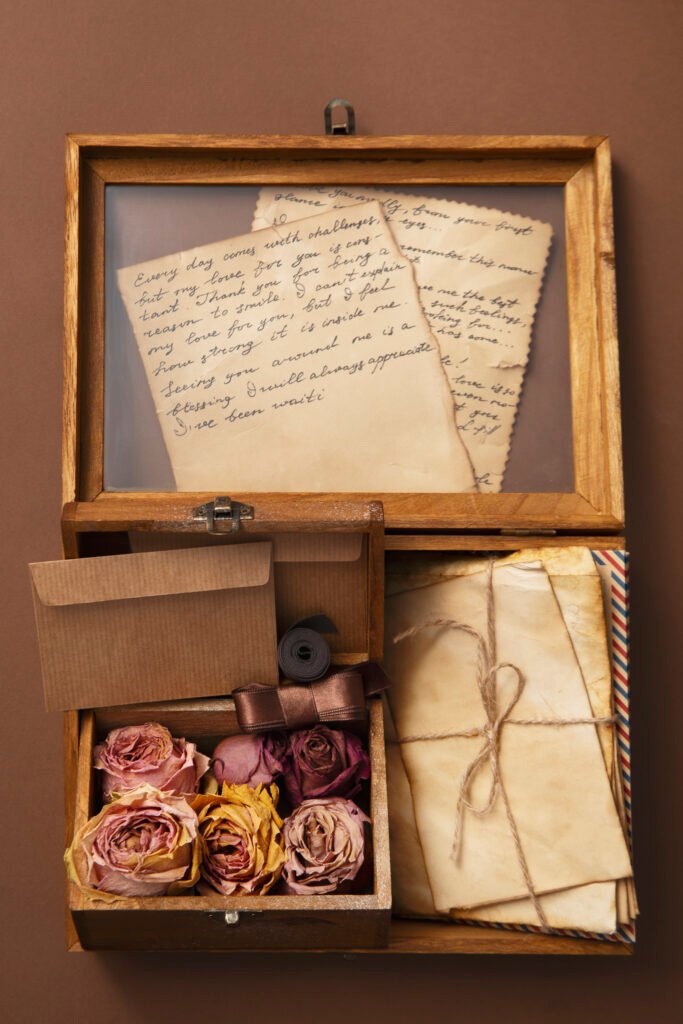 Every day comes with challenges,
but my love for you is cons-
tant. Thank you for being a
reason to smile. I can't explain
my love for you, but I feel
how strong it is inside me.
Seeing you around me is a
blessing I will always appreciate
I've been waiti
you madly, from your first
glance
eyes...
I
remember this
me the best
such feelings,
looking for...
has some...
!
love is so
even no-
t you
d